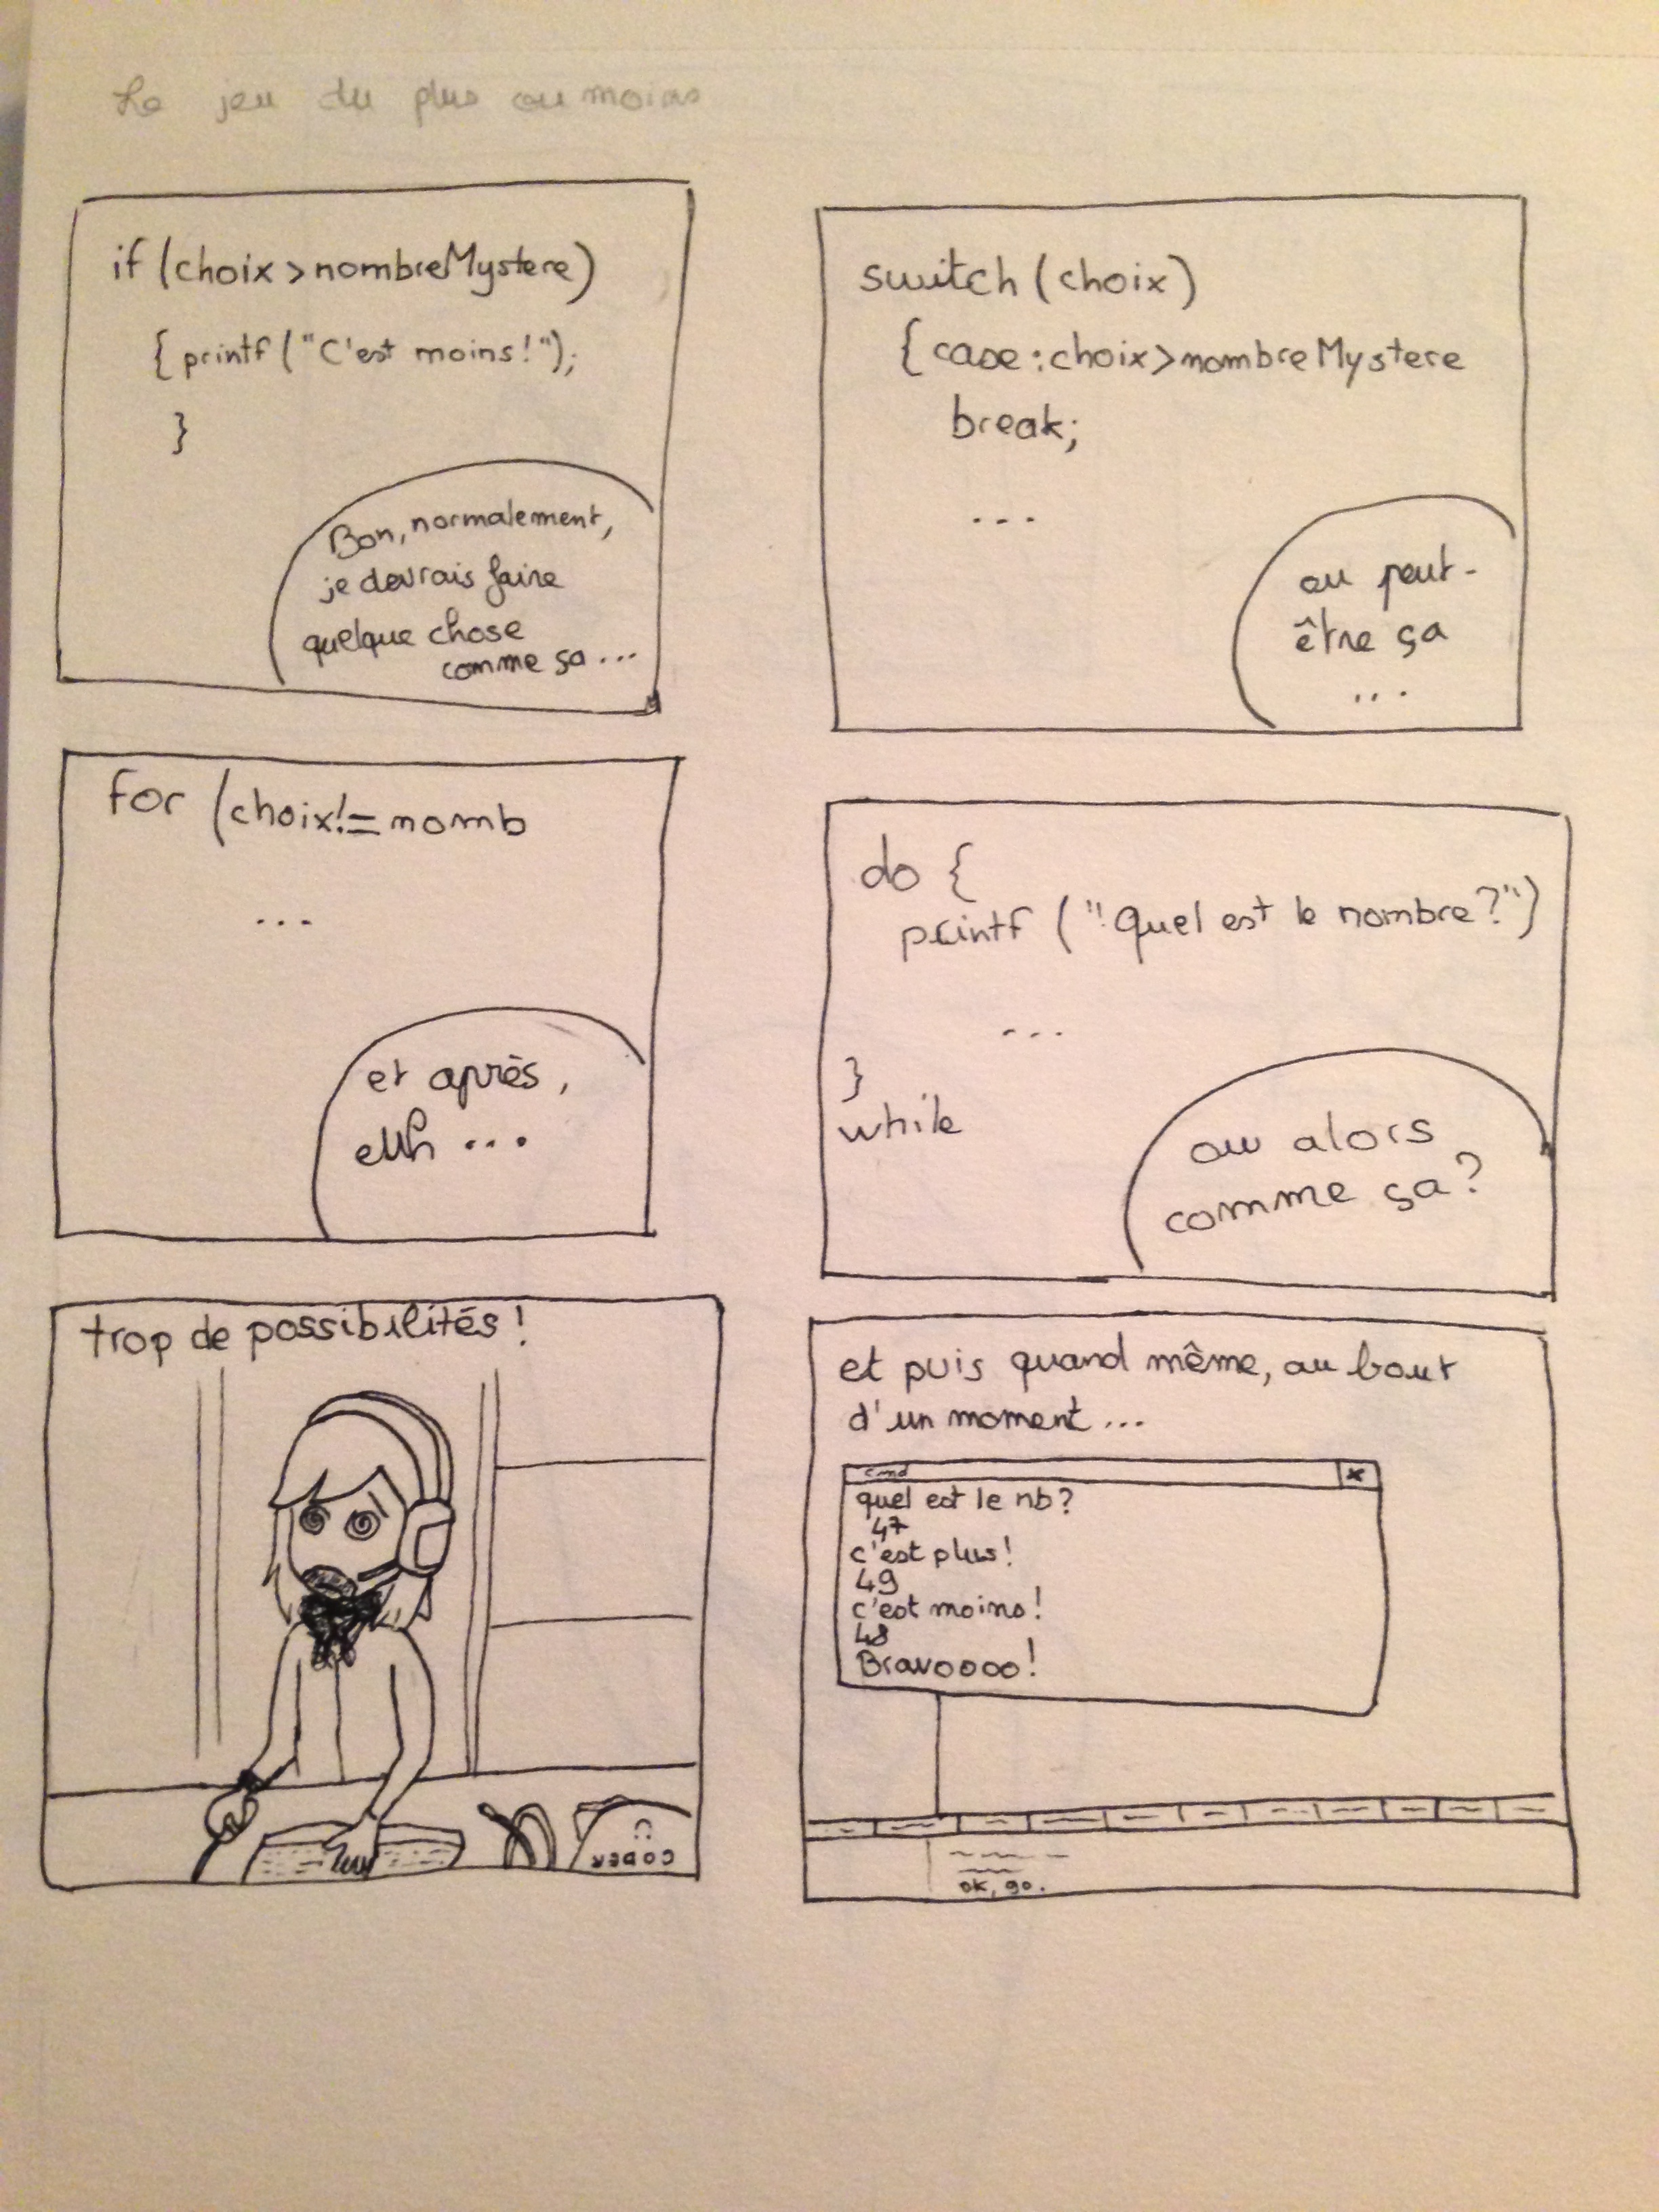 Le jeu du plus ou moins
if (choix > nombreMystere)
{ printf ("C'est moins!");
}
Bon, normalement,
je devrais faire
quelque chose
comme ça ...
switch (choix)
{ case : choix > nombreMystere
break;
...
ou peut-
être ça
...
for (choix != nomb
...
et après,
euh ...
do {
printf ("Quel est le nombre?")
...
}
while
ou alors
comme ça?
trop de possibilités !
CODER
et puis quand même, au bout
d'un moment ...
cmd x
quel est le nb?
47
c'est plus!
49
c'est moins!
48
Bravoooo!
ok, go.